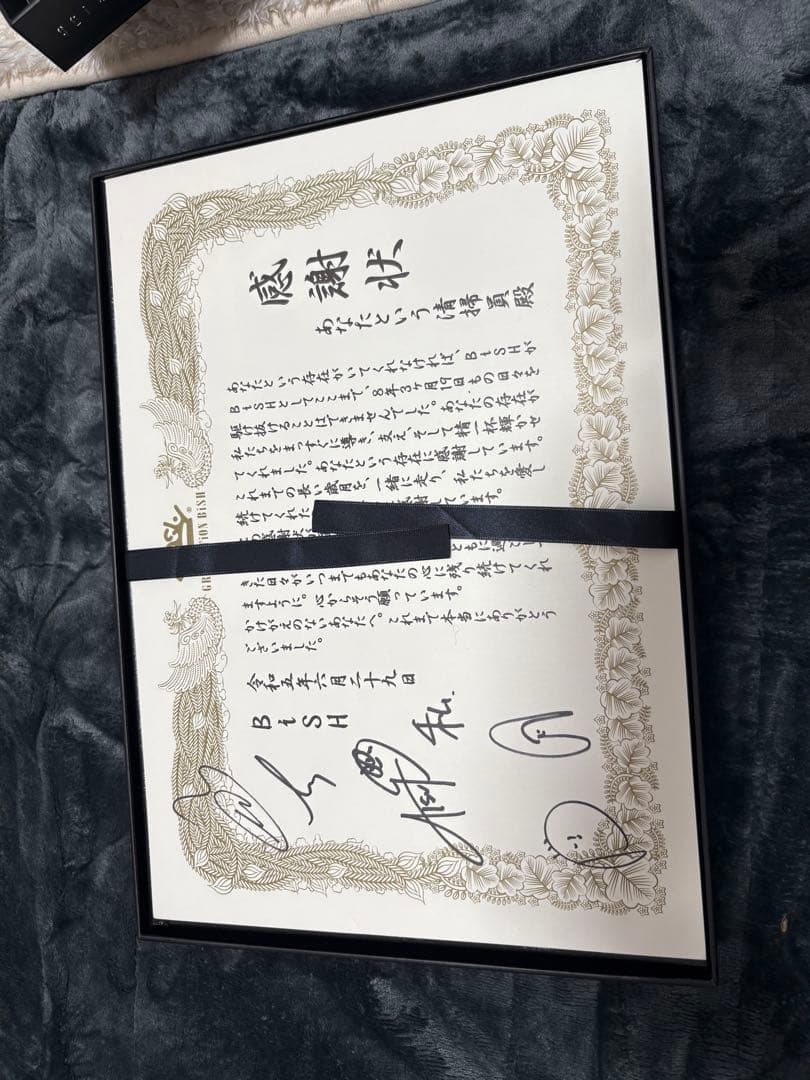 感謝状
あなたという清掃員殿
あなたという存在がいてくれなければ、BiSHが
BiSHとしてここまで、8年3ヶ月19日もの日々を
駆け抜けることはできませんでした。あなたの存在が
私たちをまっすぐに導き、支え、そして精一杯輝かせ
てくれました。あなたという存在に感謝しています。
これまでの長い歳月を一緒に走り、私たちを愛し
続けてくれた 謝しています。
感謝状
ともに過
きた日々がいつまでもあなたの心に残り続けてくれ
ますように。心からそう願っています。
かけがえのないあなたへ。これまで本当にありがとう
ございました。
令和五年六月二十九日
BiSH
BiSH